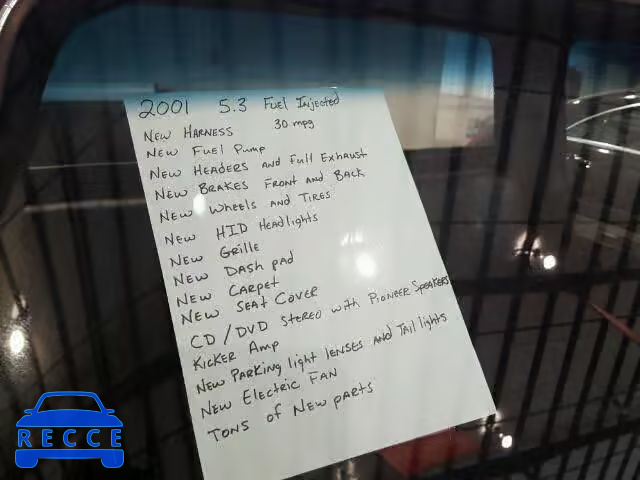 2001 5.3 Fuel Injected
New Harness 30 mpg
New Fuel Pump
New Headers and Full Exhaust
New Brakes Front and Back
New Wheels and Tires
New HID Headlights
New Grille
New Dash pad
New Carpet
New Seat Cover
CD/DVD Stereo with Pioneer Speakers
Kicker Amp
New Parking light lenses and Tail lights
New Electric Fan
Tons of New parts
RECCE